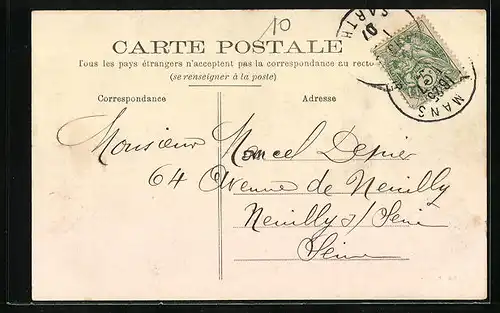 10
CARTE POSTALE
Tous les pays étrangers n'acceptent pas la correspondance au recto
(se renseigner à la poste)
Correspondance
Adresse
MANS
SARTHE
Monsieur Marcel
64 Avenue de Neuilly
Neuilly s/ Seine
Seine